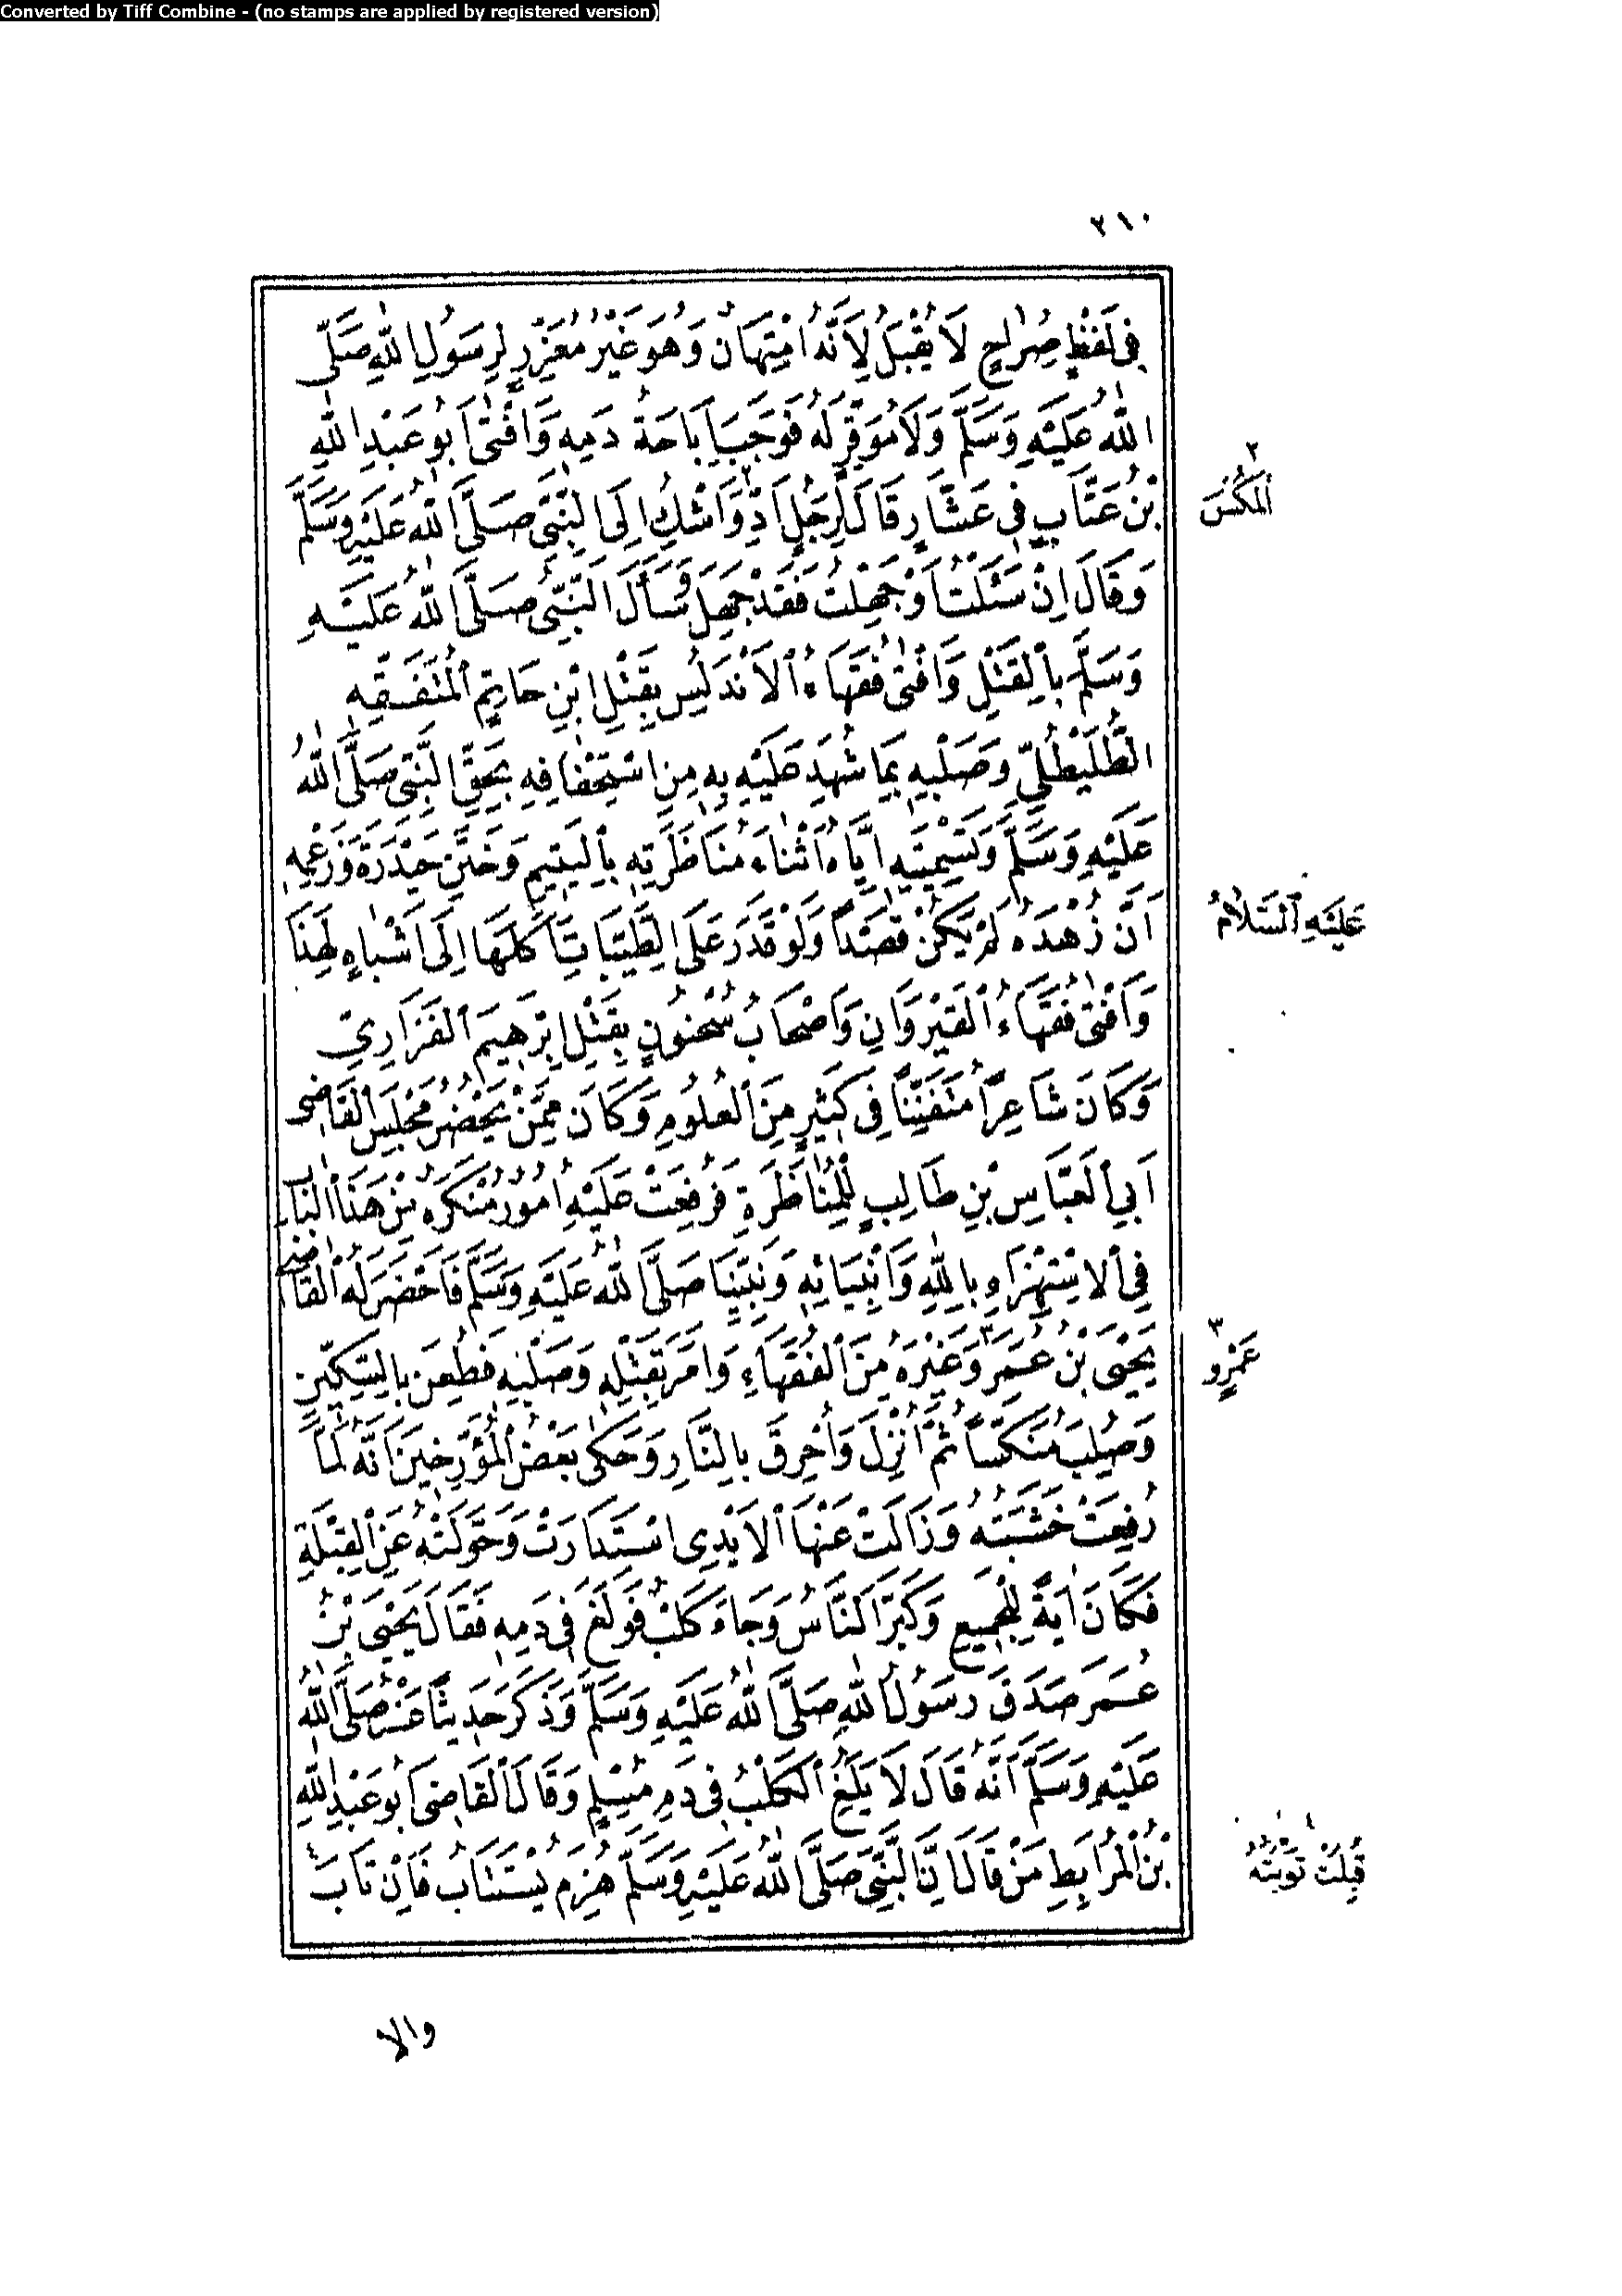 Converted by Tiff Combine - (no stamps are applied by registered version)
٢١٠
فِى لَفْظٍ صُرَاحٍ لَا يُقْبَلُ لِاَنَّهُ امْتِهَانٌ وَهُوَ غَيْرُ مُعَزِّرٍ لِرَسُولِ اللّٰهِ صَلَّى
اللّٰهُ عَلَيْهِ وَسَلَّمَ وَلَا مُوَقِّرٍ لَهُ فَوَجَبَ اِبَاحَةُ دَمِهِ وَاَفْتٰى اَبُو عَبْدِ اللّٰهِ
بْنُ عَتَّابٍ فِى عَشَّارٍ قَالَ لِرَجُلٍ اَدِّ وَاشْكُ اِلَى النَّبِىِّ صَلَّى اللّٰهُ عَلَيْهِ وَسَلَّمَ
٢
اَلْمَكْسَ
وَقَالَ اِنْ سَئَلْتُ اَوْ جَهِلْتُ فَقَدْ جَهِلَ وَسَأَلَ النَّبِىُّ صَلَّى اللّٰهُ عَلَيْهِ
وَسَلَّمَ بِالْقَتْلِ وَاَفْتٰى فُقَهَاءُ الْاَنْدَلُسِ بِقَتْلِ ابْنِ حَاتِمٍ الْمُتَفَقِّهِ
الطُّلَيْطُلِىِّ وَصَلْبِهِ بِمَا شُهِدَ عَلَيْهِ بِهِ مِنِ اسْتِخْفَافِهِ بِحَقِّ النَّبِىِّ صَلَّى اللّٰهُ
عَلَيْهِ وَسَلَّمَ وَتَسْمِيَتِهِ اِيَّاهُ اَثْنَاءَ مُنَاظَرَتِهِ بِالْيَتِيمِ وَخَتَنِ حَيْدَرَةَ وَزَعْمِهِ
اَنَّ زُهْدَهُ لَمْ يَكُنْ قَصْدًا وَلَوْ قَدَرَ عَلَى الطَّيِّبَاتِ اَكَلَهَا اِلَى اَشْبَاهٍ لِهٰذَا
عَلَيْهِ السَّلَامُ
وَاَفْتٰى فُقَهَاءُ الْقَيْرَوَانِ وَاَصْحَابُ سُحْنُونٍ بِقَتْلِ اِبْرٰهِيمَ الْفَزَارِىِّ
وَكَانَ شَاعِرًا مُتَفَنِّنًا فِى كَثِيرٍ مِنَ الْعُلُومِ وَكَانَ مِمَّنْ يَحْضُرُ مَجْلِسَ الْقَاضِى
اَبِى الْعَبَّاسِ بْنِ طَالِبٍ لِلْمُنَاظَرَةِ فَرُفِعَتْ عَلَيْهِ اُمُورٌ مُنْكَرَةٌ مِنْ هٰذَا الْبَابِ
فِى الْاِسْتِهْزَاءِ بِاللّٰهِ وَاَنْبِيَائِهِ وَنَبِيِّنَا صَلَّى اللّٰهُ عَلَيْهِ وَسَلَّمَ فَاَحْضَرَ لَهُ الْقَاضِى
يَحْيَى بْنَ عُمَرَ وَغَيْرَهُ مِنَ الْفُقَهَاءِ وَاَمَرَ بِقَتْلِهِ وَصَلْبِهِ فَطُعِنَ بِالسِّكِّينِ
٣
عَمْرٍو
وَصُلِبَ مُنَكَّسًا ثُمَّ اُنْزِلَ وَاُحْرِقَ بِالنَّارِ وَحَكٰى بَعْضُ الْمُؤَرِّخِينَ اَنَّهُ لَمَّا
رُفِعَتْ خَشَبَتُهُ وَزَالَتْ عَنْهَا الْاَيْدِى اسْتَدَارَتْ وَحَوَّلَتْهُ عَنِ الْقِبْلَةِ
فَكَانَ اٰيَةً لِلْجَمِيعِ وَكَبَّرَ النَّاسُ وَجَاءَ كَلْبٌ فَوَلَغَ فِى دَمِهِ فَقَالَ يَحْيَى بْنُ
عُمَرَ صَدَقَ رَسُولُ اللّٰهِ صَلَّى اللّٰهُ عَلَيْهِ وَسَلَّمَ وَذَكَرَ حَدِيثًا عَنْهُ صَلَّى اللّٰهُ
عَلَيْهِ وَسَلَّمَ اَنَّهُ قَالَ لَا يَلَغُ الْكَلْبُ فِى دَمِ مُسْلِمٍ وَقَالَ الْقَاضِى اَبُو عَبْدِ اللّٰهِ
بْنُ الْمُرَابِطِ مَنْ قَالَ اِنَّ النَّبِىَّ صَلَّى اللّٰهُ عَلَيْهِ وَسَلَّمَ هُزِمَ يُسْتَتَابُ فَاِنْ تَابَ
٤
قُبِلَتْ تَوْبَتُهُ
والا